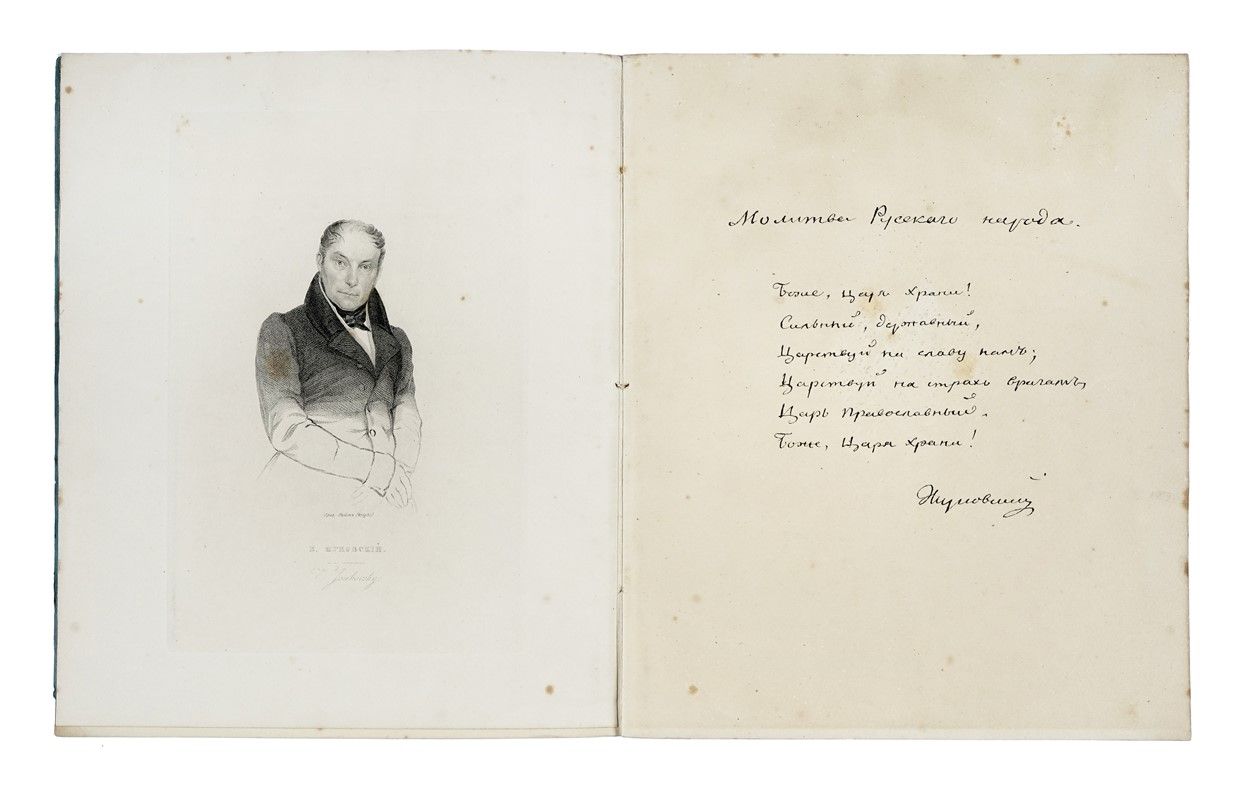 В. ЖУКОВСКІЙ.
Joukovsky
Молитва Русскаго народа.
Боже, Царя храни!
Сильный, державный,
Царствуй на славу намъ;
Царствуй на страхъ врагамъ,
Царь Православный.
Боже, Царя храни!
Жуковский